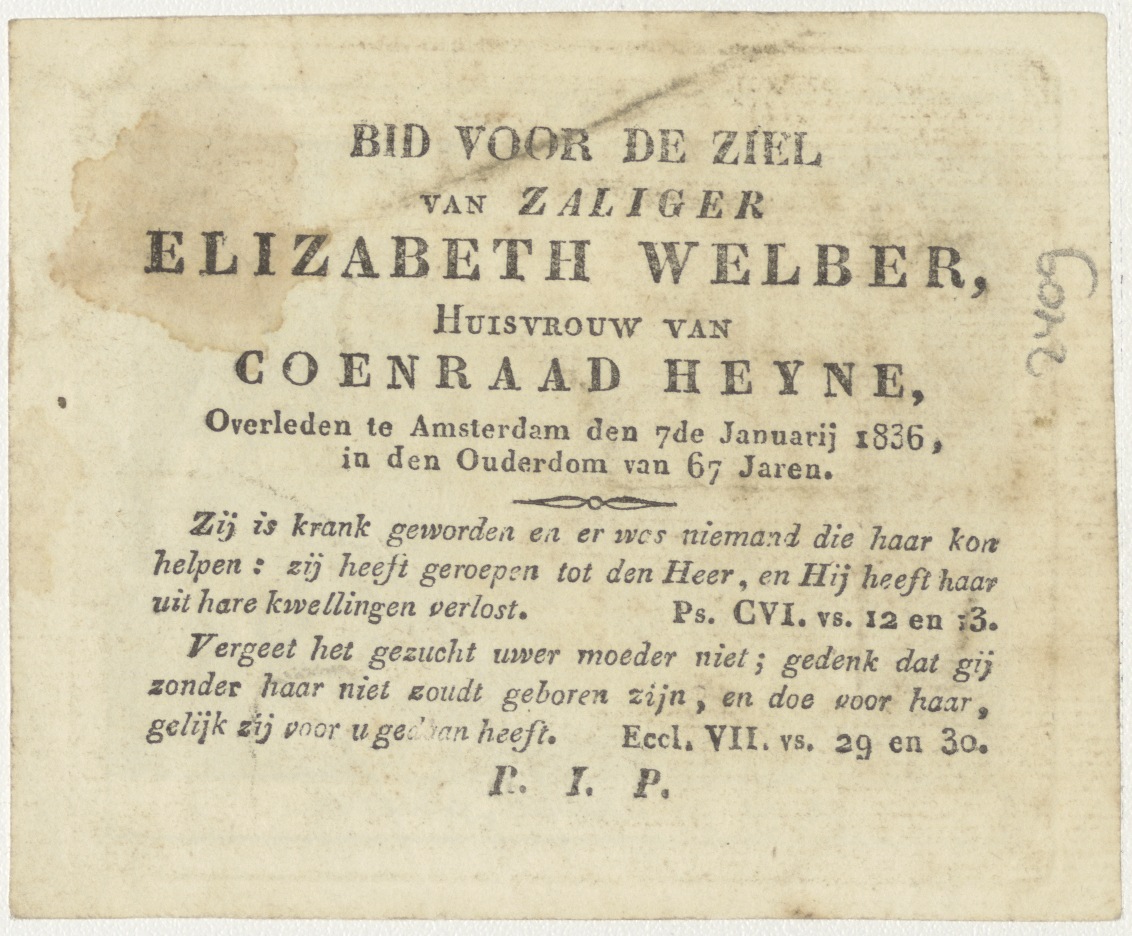 BID VOOR DE ZIEL
VAN ZALIGER
ELIZABETH WELBER,
HUISVROUW VAN
COENRAAD HEYNE,
Overleden te Amsterdam den 7de Januarij 1836,
in den Ouderdom van 67 Jaren.
Zij is krank geworden en er was niemand die haar kon
helpen: zij heeft geroepen tot den Heer, en Hij heeft haar
uit hare kwellingen verlost. Ps. CVI. vs. 12 en 13.
Vergeet het gezucht uwer moeder niet; gedenk dat gij
zonder haar niet zoudt geboren zijn, en doe voor haar,
gelijk zij voor u gedaan heeft. Eccl. VII. vs. 29 en 30.
R. I. P.
2409